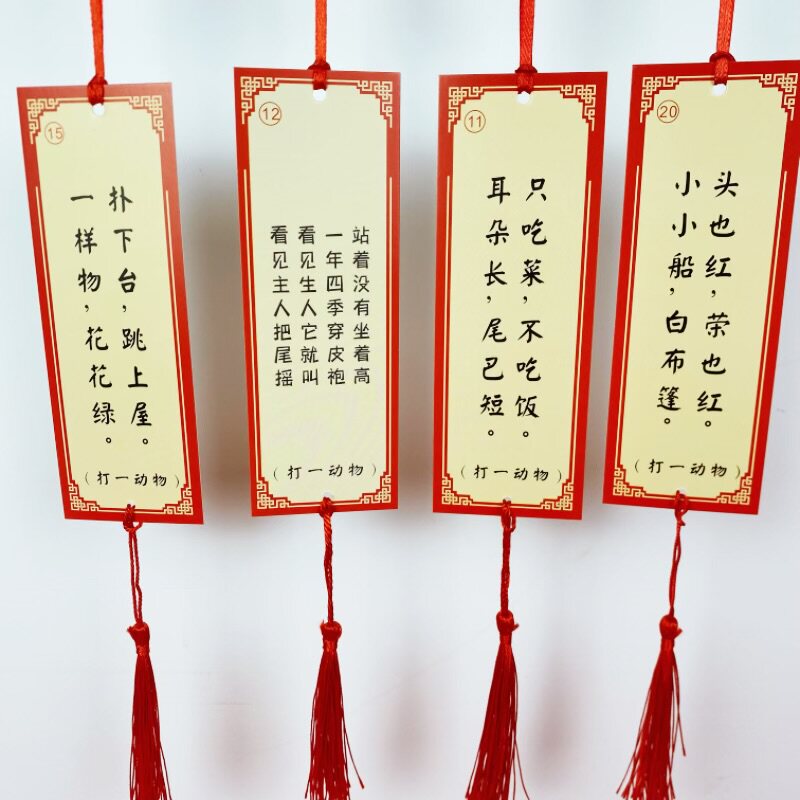 15
一样物，花花绿。
扑下台，跳上屋。
（打一动物）
12
站着没有坐着高
一年四季穿皮袍
看见生人它就叫
看见主人把尾摇
（打一动物）
11
耳朵长，尾巴短。
只吃菜，不吃饭。
（打一动物）
20
小小船，白布篷。
头也红，荣也红。
（打一动物）